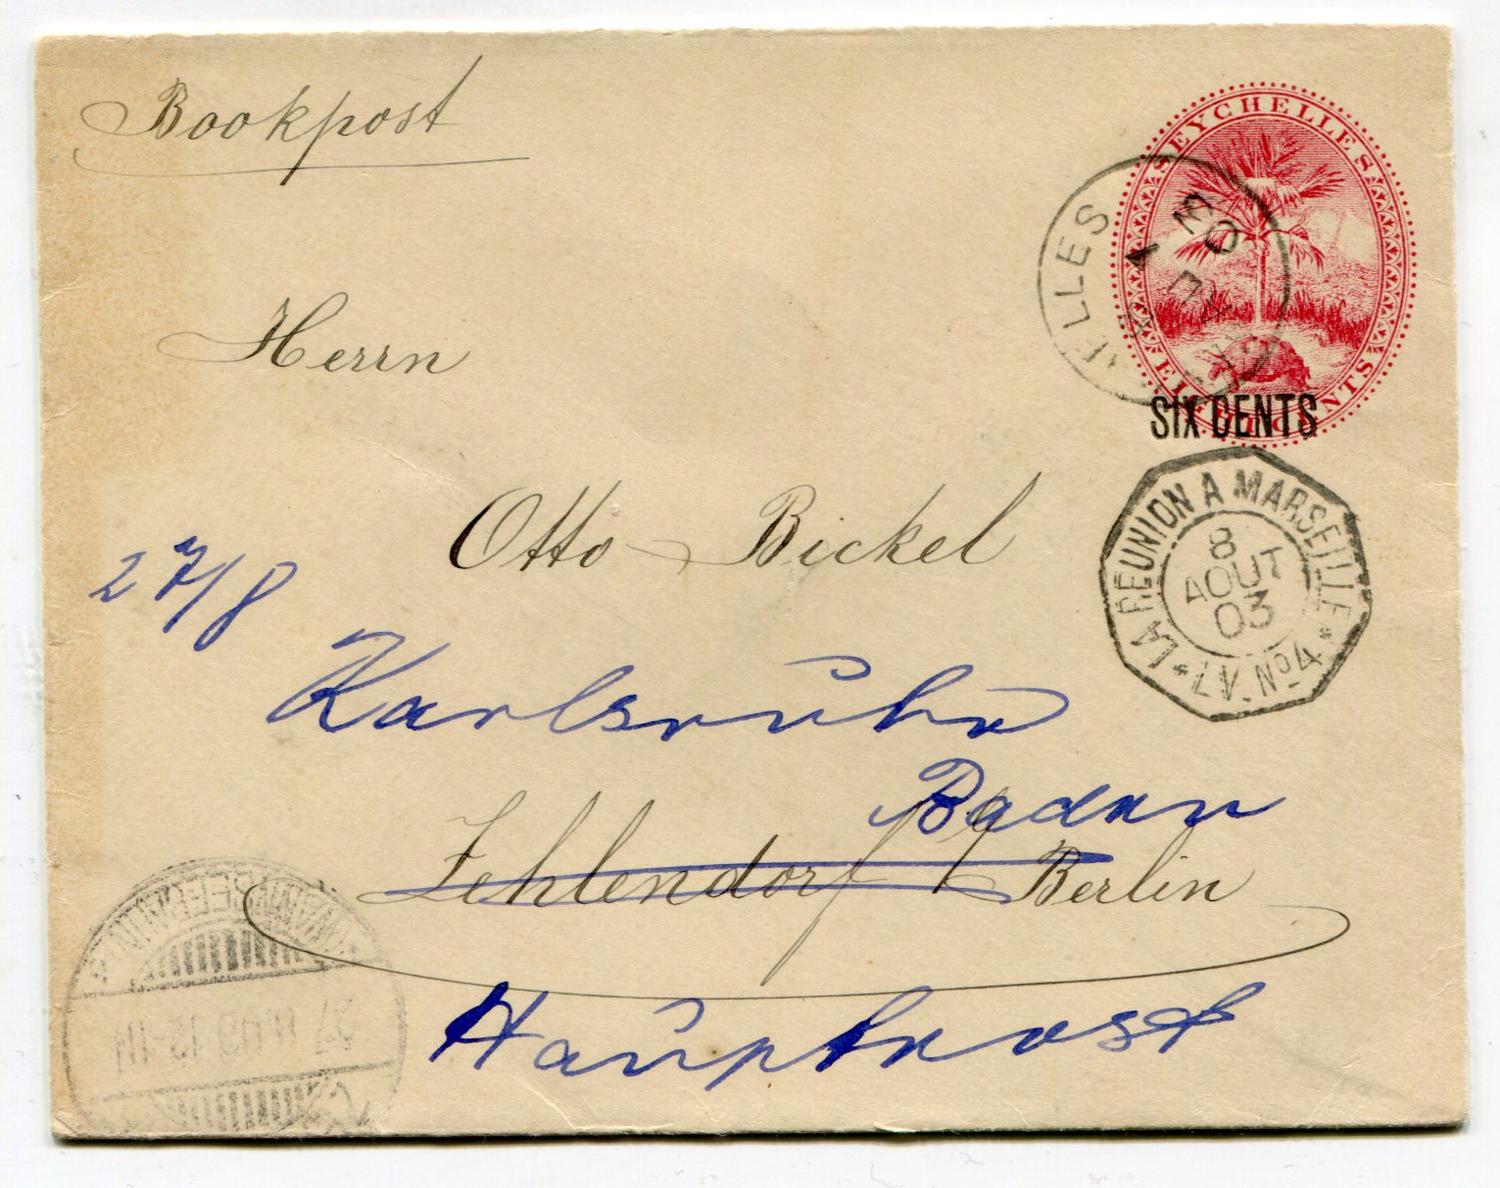 Bookpost
SEYCHELLES
EI CENTS
SIX CENTS
ELLES
03
Herrn
Otto Bickel
27/8
LA REUNION A MARSEILLE
8
AOUT
03
* L.V. No 4 *
Karlsruhe
Baden
Zehlendorf Berlin
Hauptpost